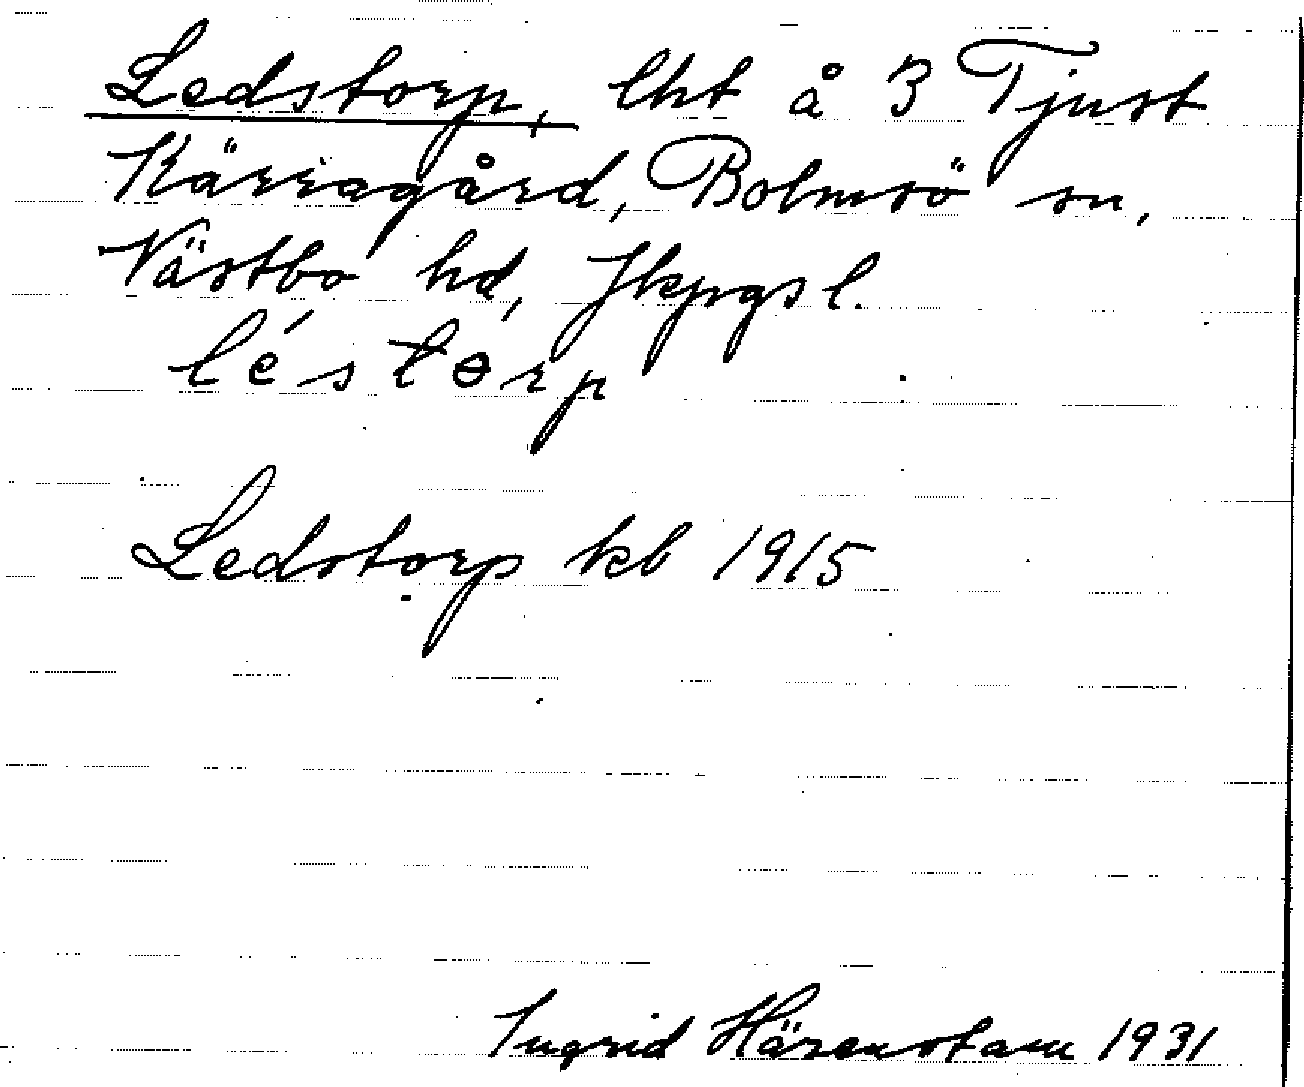 Ledstorp, lht å 3 Tjust
Kärragård, Bolmsö sn,
Västbo hd, Jkpgs l.
léstórp
Ledstorp kb 1915
Ingrid Härenstam 1931